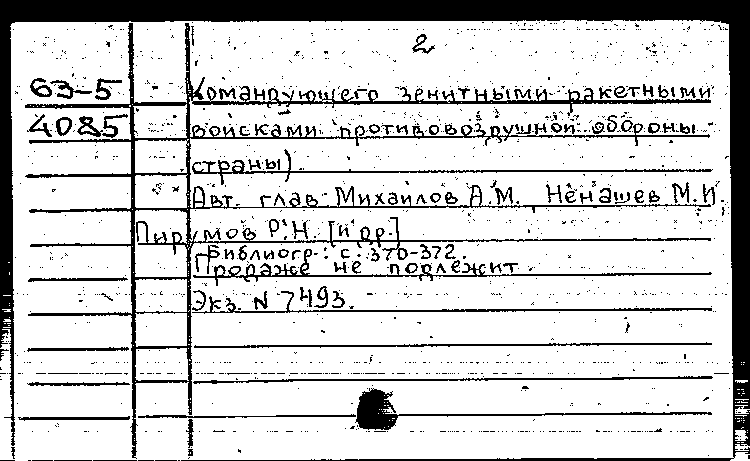 2
63-5
4085
Командующего зенитными ракетными
войсками противовоздушной обороны
страны)
Авт. глав Михайлов А.М., Ненашев М.И.
Пирумов Р.Н. [и др.]
Библиогр.: с. 370-372.
Продаже не подлежит
Экз. N 7493.